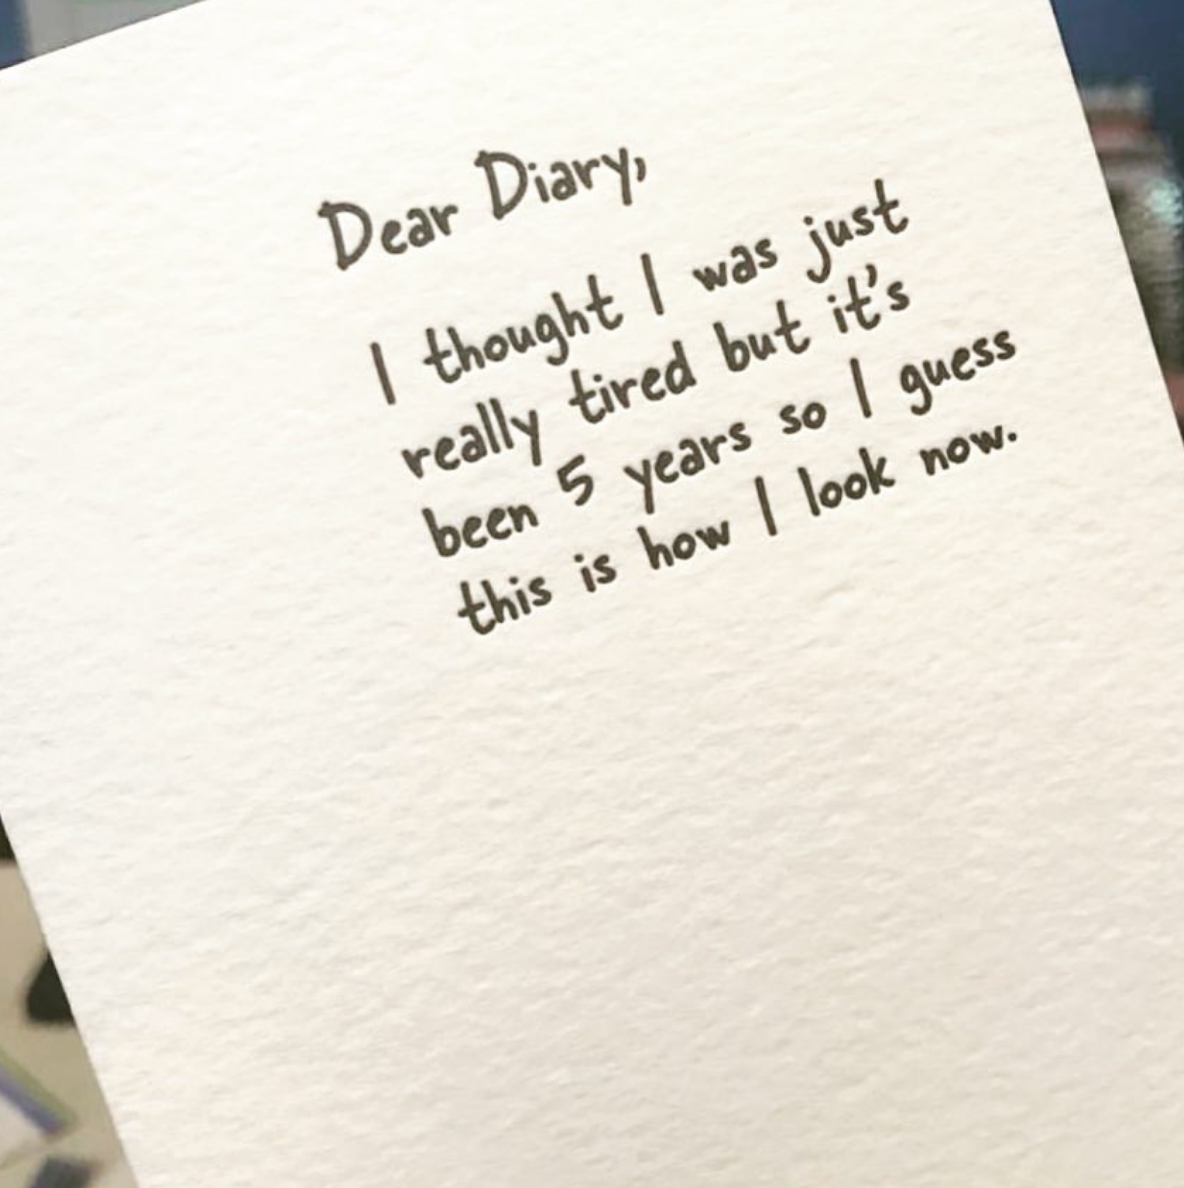 Dear Diary,
I thought I was just
really tired but it's
been 5 years so I guess
this is how I look now.